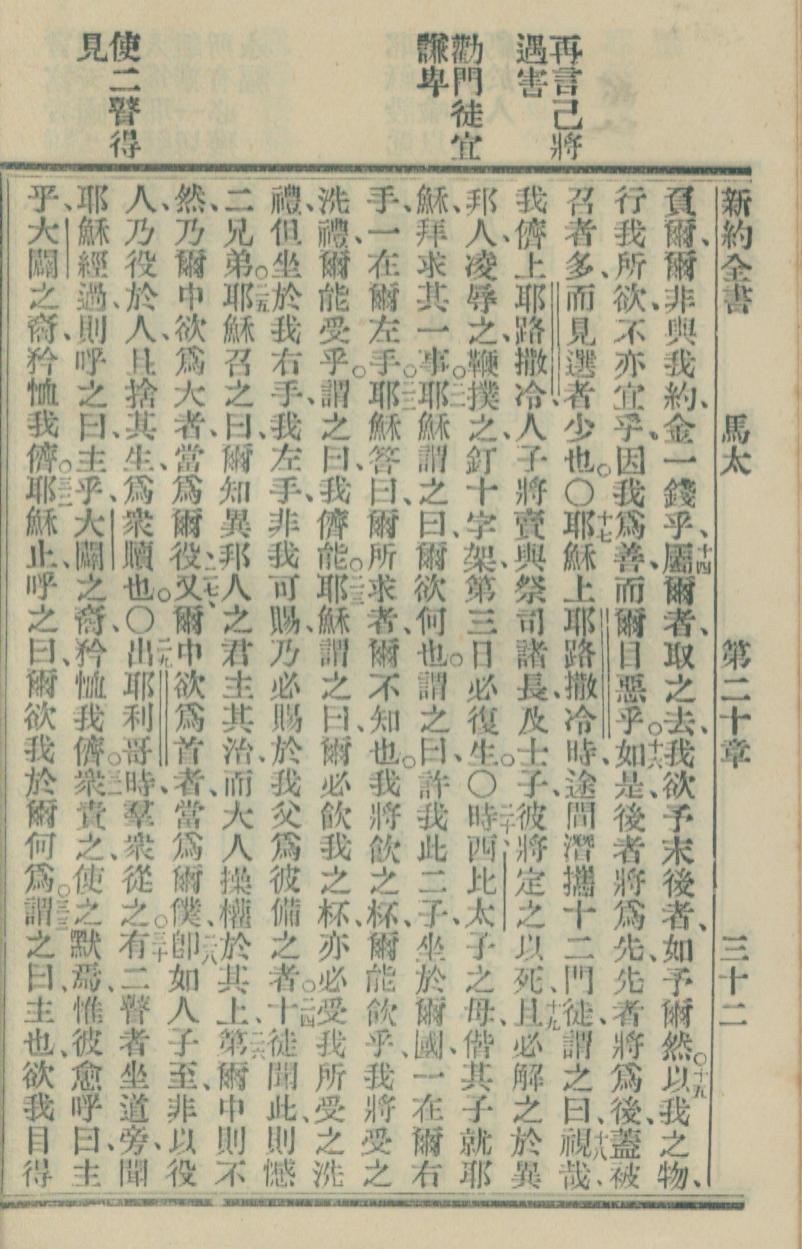 新約全書　馬太　第二十章　三十二
再言己將
遇害
勸門徒宜
謙卑
使二瞽得
見
負爾、爾非與我約、金一錢乎、十四屬爾者、取之去、我欲予末後者、如予爾然○十五以我之物、
行我所欲、不亦宜乎、因我爲善、而爾目惡乎○十六如是後者將爲先、先者將爲後、蓋被
召者多、而見選者少也○〇十七耶穌上耶路撒冷時、途間潛攜十二門徒、謂之曰、十八視哉、
我儕上耶路撒冷、人子將賣與祭司諸長、及士子、彼將定之以死、十九且必解之於異
邦人、凌辱之、鞭撲之、釘十字架、第三日必復生○〇二十時西比太子之母、偕其子就耶
穌、拜求其一事○二一耶穌謂之曰、爾欲何也○謂之曰、許我此二子、坐於爾國、一在爾右
手、一在爾左手○二二耶穌答曰、爾所求者、爾不知也○我將飲之杯、爾能飲乎、我將受之
洗禮、爾能受乎○謂之曰、我儕能○二三耶穌謂之曰、爾必飲我之杯、亦必受我所受之洗
禮、但坐於我右手、我左手、非我可賜、乃必賜於我父爲彼備之者○二四十徒聞此、則憾
二兄弟○二五耶穌召之曰、爾知異邦人之君主其治、而大人操權於其上、二六第爾中則不
然、乃爾中欲爲大者、當爲爾役、二七又爾中欲爲首者、當爲爾僕、二八卽如人子至、非以役
人、乃役於人、且捨其生、爲衆贖也○〇二九出耶利哥時、羣衆從之○三十有二瞽者坐道旁、聞
耶穌經過、則呼之曰、主乎、大闢之裔、矜恤我儕○三一衆責之、使之默焉、惟彼愈呼曰、主
乎、大闢之裔、矜恤我儕○三二耶穌止、呼之曰、爾欲我於爾何爲○三三謂之曰、主也、欲我目得